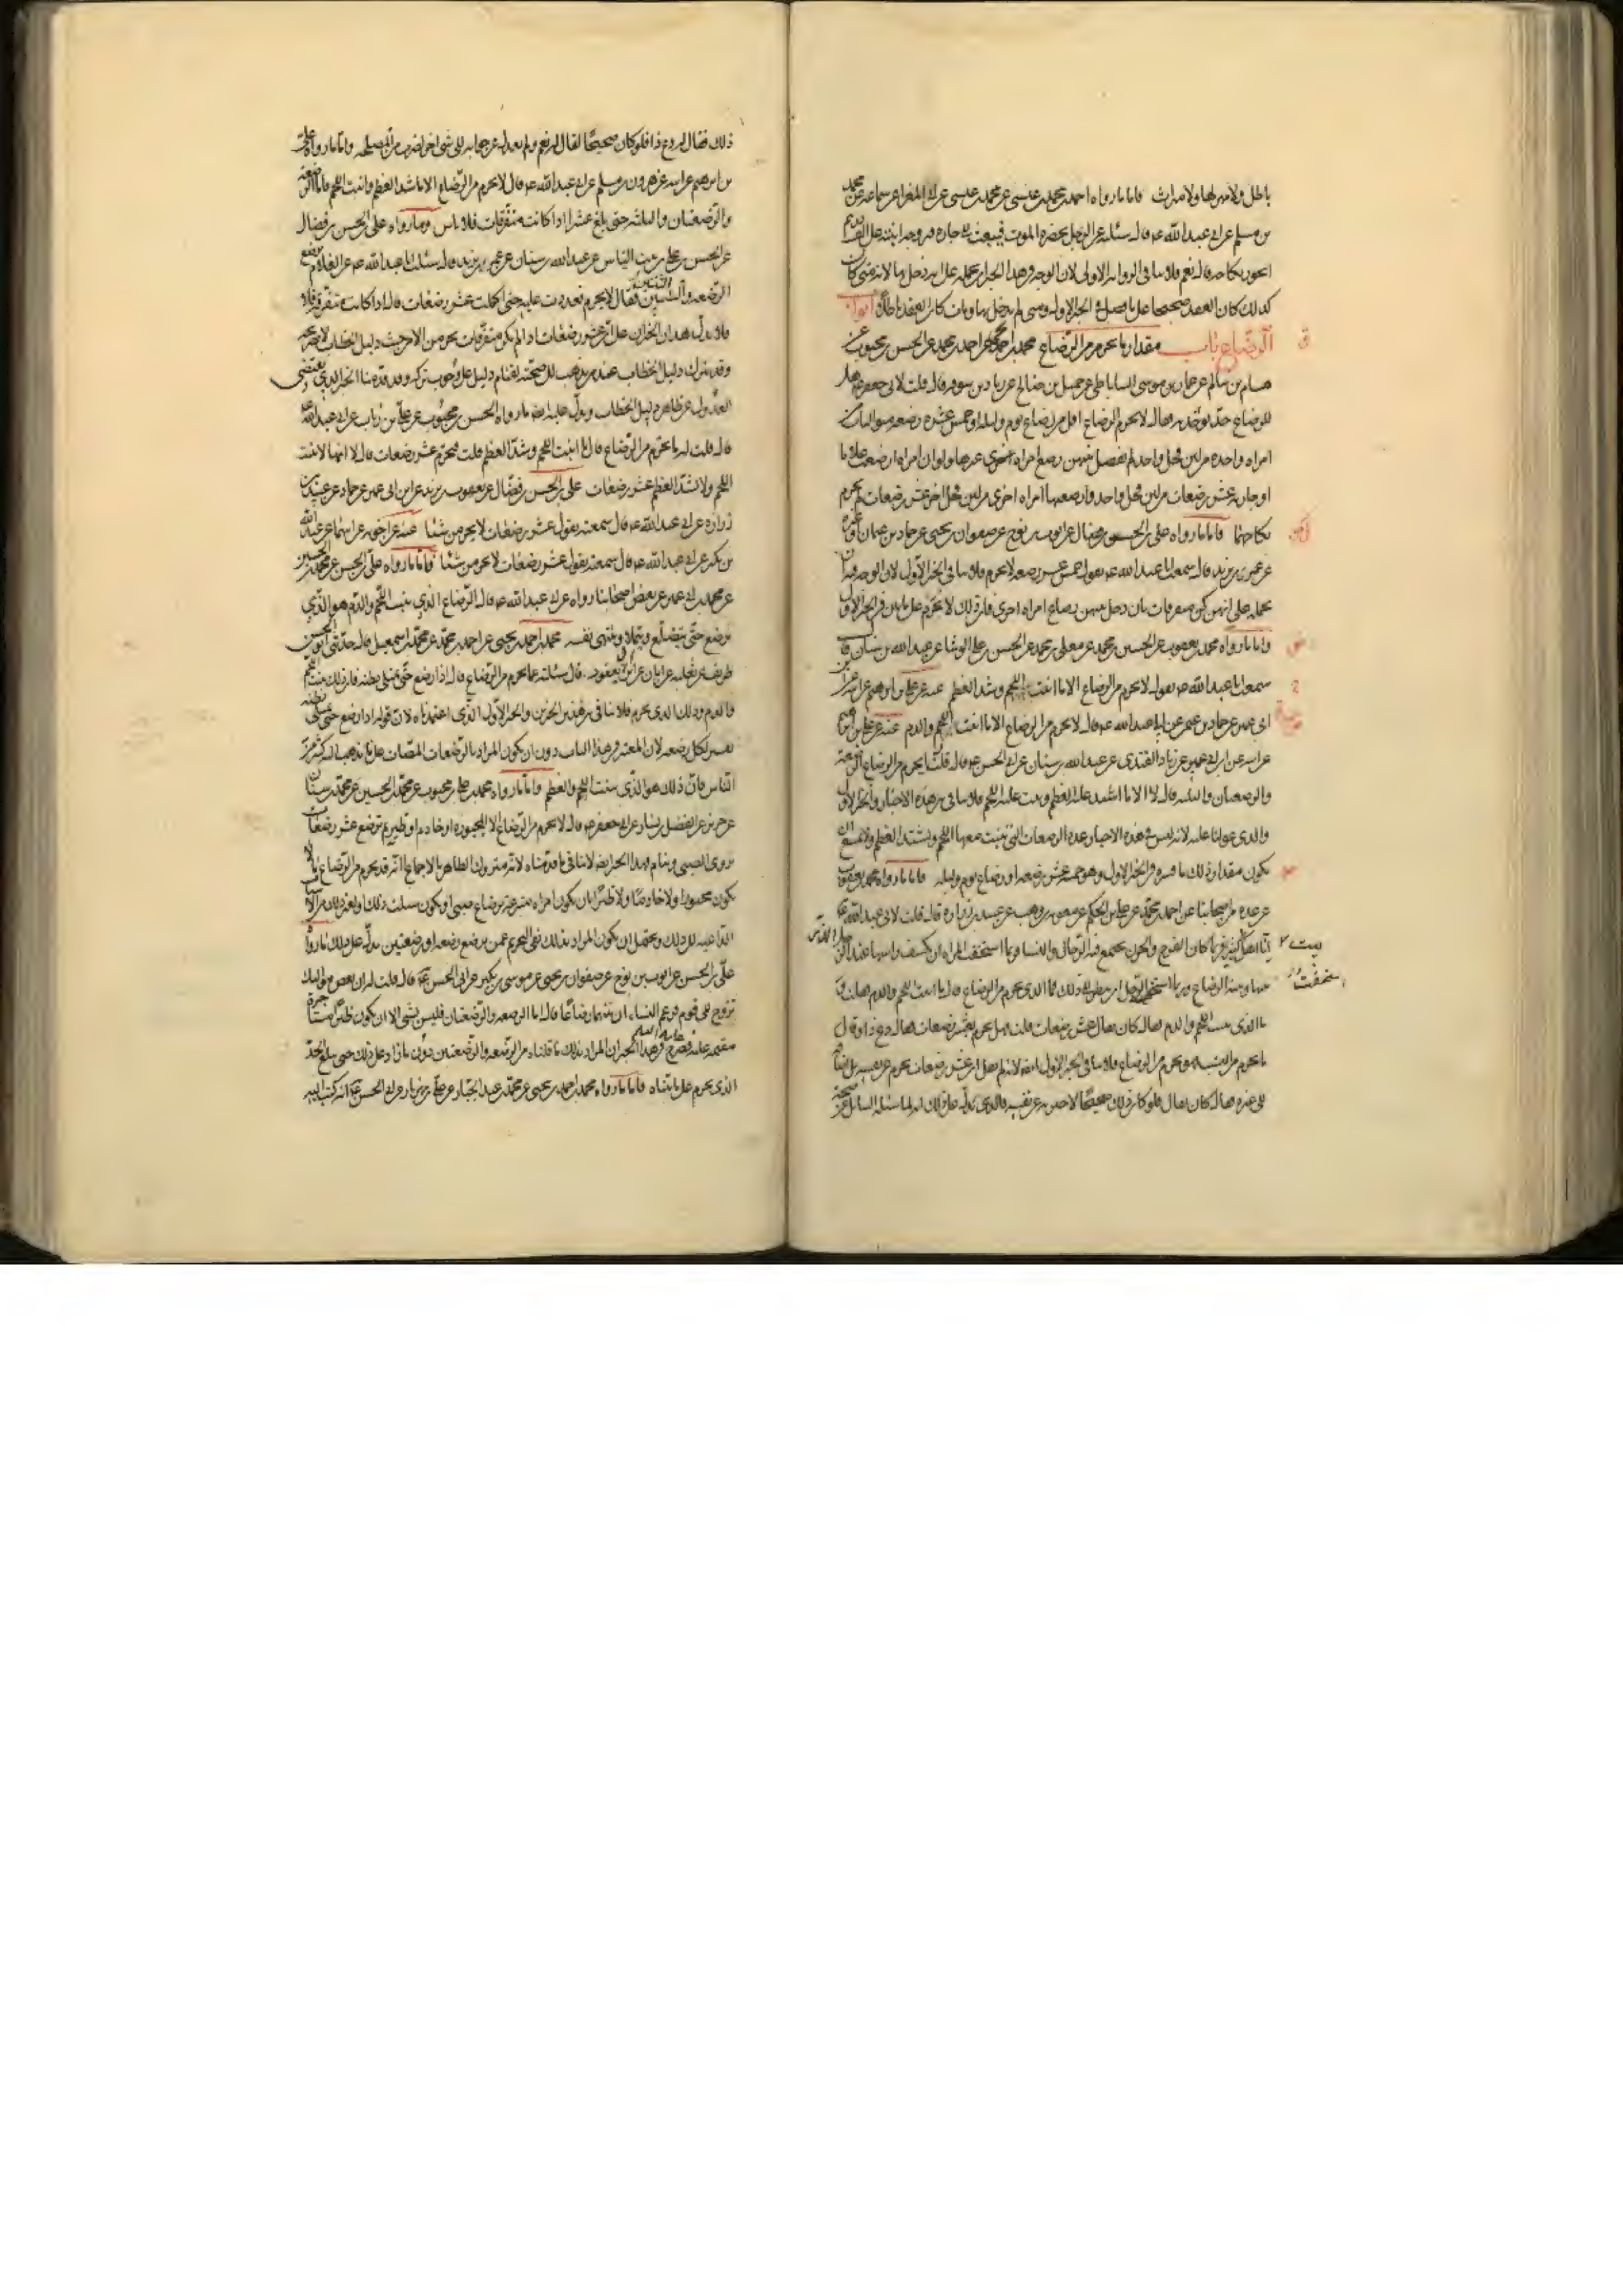 باطل ولا مهر لها ولا ميراث فاما ما رواه احمد بن محمد بن عيسى عن محمد بن عيسى عن ابي المغرا عن سماعة عن محمد
بن مسلم عن ابي عبد الله عه قال سئلته عن الرجل يحضره الموت فيبعث الى جاره فيزوجه ابنته على الف درهم
ايجوز نكاحه قال نعم فلا ينافي الرواية الاولى لان الوجه في هذا الخبر ان نحمله على انه دخل بها لانه متى كان
كذلك كان العقد صحيحا على ما فصل في الخبر الاول ومتى لم يدخل بها ومات كان العقد باطلا ابواب
الرضاع باب مقدار ما يحرم من الرضاع محمد بن احمد بن يحيى عن احمد بن محمد عن الحسن بن محبوب عن
هشام بن سالم عن عمار بن موسى الساباطي عن جميل بن صالح عن زياد بن سوقة قال قلت لابي جعفر عه هل
للرضاع حد يوخذ به فقال لا يحرم الرضاع اقل من رضاع يوم وليلة او خمس عشرة رضعة متواليات من
امراة واحدة من لبن فحل واحد لم يفصل بينهن رضاع امراة اخرى غيرها ولو ان امراة ارضعت غلاما
او جارية عشر رضعات من لبن فحل واحد وارضعتها امراة اخرى من لبن فحل اخر عشر رضعات لم يحرم
نكاحهما فاما ما رواه علي بن الحسن بن فضال عن ايوب بن نوح عن صفوان بن يحيى عن حماد بن عثمان او غيره
عن عمر بن يزيد قال سمعت ابا عبد الله عه يقول خمس عشرة رضعة لا تحرم فلا ينافي الخبر الاول لان الوجه فيه ان
نحمله على انهن كن متفرقات بان دخل بينهن رضاع امراة اخرى فان ذلك لا يحرم على ما بين في الخبر الاول
واما ما رواه محمد بن يعقوب عن الحسين بن محمد عن معلى بن محمد عن الحسن بن علي الوشاء عن عبد الله بن سنان قال
سمعت ابا عبد الله عه يقول لا يحرم من الرضاع الا ما انبت اللحم وشد العظم عنه عن علي بن ابراهيم عن ابيه عن ابن
ابي عمير عن حماد بن عثمان عن ابي عبد الله عه قال لا يحرم من الرضاع الا ما انبت اللحم والدم عنه عن علي بن ابراهيم
عن ابيه عن ابن ابي عمير عن زياد القندي عن عبد الله بن سنان عن ابي الحسن عه قال قلت يحرم من الرضاع الرضعة
والرضعتان والثلثة قال لا الا ما اشتد عليه العظم ونبت عليه اللحم فلا ينافي هذه الاخبار والخبر الاول
والذي عولنا عليه لانه ليس في هذه الاخبار عدد الرضعات التي ينبت معها اللحم ويشتد العظم ولا يمتنع ان
يكون مقدار ذلك ما فسره في الخبر الاول وهو خمسة عشر رضعة او رضاع يوم وليلة فاما ما رواه محمد بن يعقوب
عن عدة من اصحابنا عن احمد بن محمد عن علي بن الحكم عن معوية بن وهب عن عبيد بن زرارة قال قلت لابي عبد الله عه
انا اهل بيت كثير فربما كان الفرح والحزن يجتمع فيه الرجال والنساء وربما استحيت المراة ان تكشف راسها عند الرجل الذي
بينها وبينه الرضاع وربما استخف الرجل ان ينظر الى ذلك فما الذي يحرم من الرضاع قال ما انبت اللحم والدم فقلت
ما الذي ينبت اللحم والدم فقال كان يقال عشر رضعات قلت فهل يحرم بعشر رضعات فقال دع ذا وقال
ما يحرم من النسب فهو يحرم من الرضاع فلا ينافي الخبر الاول ايضا لانه لم يقل ان عشر رضعات يحرم عن نفسه بل اضافه
الى غيره فقال كان يقال فلو كان ذلك صحيحا لاخبر به عن نفسه والذي يدل على ذلك انه لما سئله السائل عن صحة
بيت
استخفت
ذلك فقال له دع ذا فلو كان صحيحا لقال له نعم ولم يعدل عن جوابه الى شيء اخر لضرب من المصلحة واما ما رواه علي
بن ابراهيم عن ابيه عن هرون بن مسلم عن ابي عبد الله عه قال لا يحرم من الرضاع الا ما شد العظم وانبت اللحم فاما الرضعة
والرضعتان والثلثة حتى بلغ عشرا اذا كانت متفرقات فلا باس وما رواه علي بن الحسن بن فضال
عن الحسن بن علي بن بنت الياس عن عبد الله بن سنان عن عمر بن يزيد قال سئلت ابا عبد الله عه عن الغلام يرضع
الرضعة والثنتين فقال لا يحرم فعددت عليه حتى اكملت عشر رضعات قال اذا كانت متفرقة فلا
فلا يدل هذان الخبران على ان عشر رضعات اذا لم يكن متفرقات يحرمن الا من حيث دليل الخطاب لا صريحه
وقد يترك دليل الخطاب عند من ذهب الى صحته لقيام دليل على وجوب تركه وقد قدمنا الخبر الذي يقتضي
العدول عن ظاهر دليل الخطاب ويدل عليه ايضا ما رواه الحسن بن محبوب عن علي بن رئاب عن ابي عبد الله عه
قال قلت له ما يحرم من الرضاع قال ما انبت اللحم وشد العظم قلت فيحرم عشر رضعات قال لا انها لا تنبت
اللحم ولا تشد العظم عشر رضعات علي بن الحسن بن فضال عن يعقوب بن يزيد عن ابن ابي عمير عن حماد عن عبيد بن
زرارة عن ابي عبد الله عه قال سمعته يقول عشر رضعات لا يحرمن شيئا عنه عن اخويه عن ابيهما عن عبد الله
بن بكير عن ابي عبد الله عه قال سمعته يقول عشر رضعات لا يحرمن شيئا فاما ما رواه علي بن الحسن عن محمد بن الحسين
عن محمد بن ابي عمير عن بعض اصحابنا رواه عن ابي عبد الله عه قال الرضاع الذي ينبت اللحم والدم هو الذي
يرضع حتى يتضلع ويتملا وينتهي نفسه محمد بن احمد بن يحيى عن احمد بن محمد عن محمد بن اسمعيل قال حدثني ابو الحسن
ظريف عن ثعلبة عن ابان عن ابن ابي يعفور قال سئلته عما يحرم من الرضاع قال اذا رضع حتى تمتلي بطنه فان ذلك ينبت اللحم
والدم وذلك الذي يحرم فلا ينافي هذين الخبرين والخبر الاول الذي اعتمدناه لان قوله اذا رضع حتى تمتلي بطنه
تفسير لكل رضعة لان المعتبر في هذا الباب دون ان يكون المراد بالرضعات المصات على ما يذهب اليه كثير من
الناس فان ذلك هو الذي ينبت اللحم والعظم واما ما رواه محمد بن علي بن محبوب عن محمد بن الحسين عن محمد بن سنان
عن حريز عن الفضيل بن يسار عن ابي جعفر عه قال لا يحرم من الرضاع الا المجبورة او خادم او ظئر ثم ترضع عشر رضعات
يروى الصبي وينام فهذا الخبر ايضا لا ينافي ما قدمناه لانه متروك الظاهر بالاجماع لانه قد يحرم من الرضاع ما لا
يكون مجبورا ولا خادما ولا ظئرا بان يكون امراة متبرعة برضاع صبي او يكون سبب ذلك او لغير ذلك من الاسباب
الداعية الى ذلك ويحتمل ان يكون المراد بذلك نفي التحريم عمن يرضع رضعة او رضعتين يدل على ذلك ما رواه
علي بن الحسن عن ايوب بن نوح عن صفوان بن يحيى عن موسى بن بكير عن ابي الحسن عه قال قلت له ان بعض مواليك
تزوج الى قوم فزعم النساء ان بينهما رضاعا قال اما الرضعة والرضعتان فليس بشيء الا ان يكون ظئرا مستاجرة
مقيمة عليه فصرح عليه السلم في هذا الخبر ان المراد بذلك ما قلناه من الرضعة والرضعتين دون ما زاد على ذلك حتى يبلغ الحد
الذي يحرم على ما بيناه فاما ما رواه محمد بن احمد بن يحيى عن محمد بن عبد الجبار عن علي بن مهزيار عن ابي الحسن عه انه كتب اليه